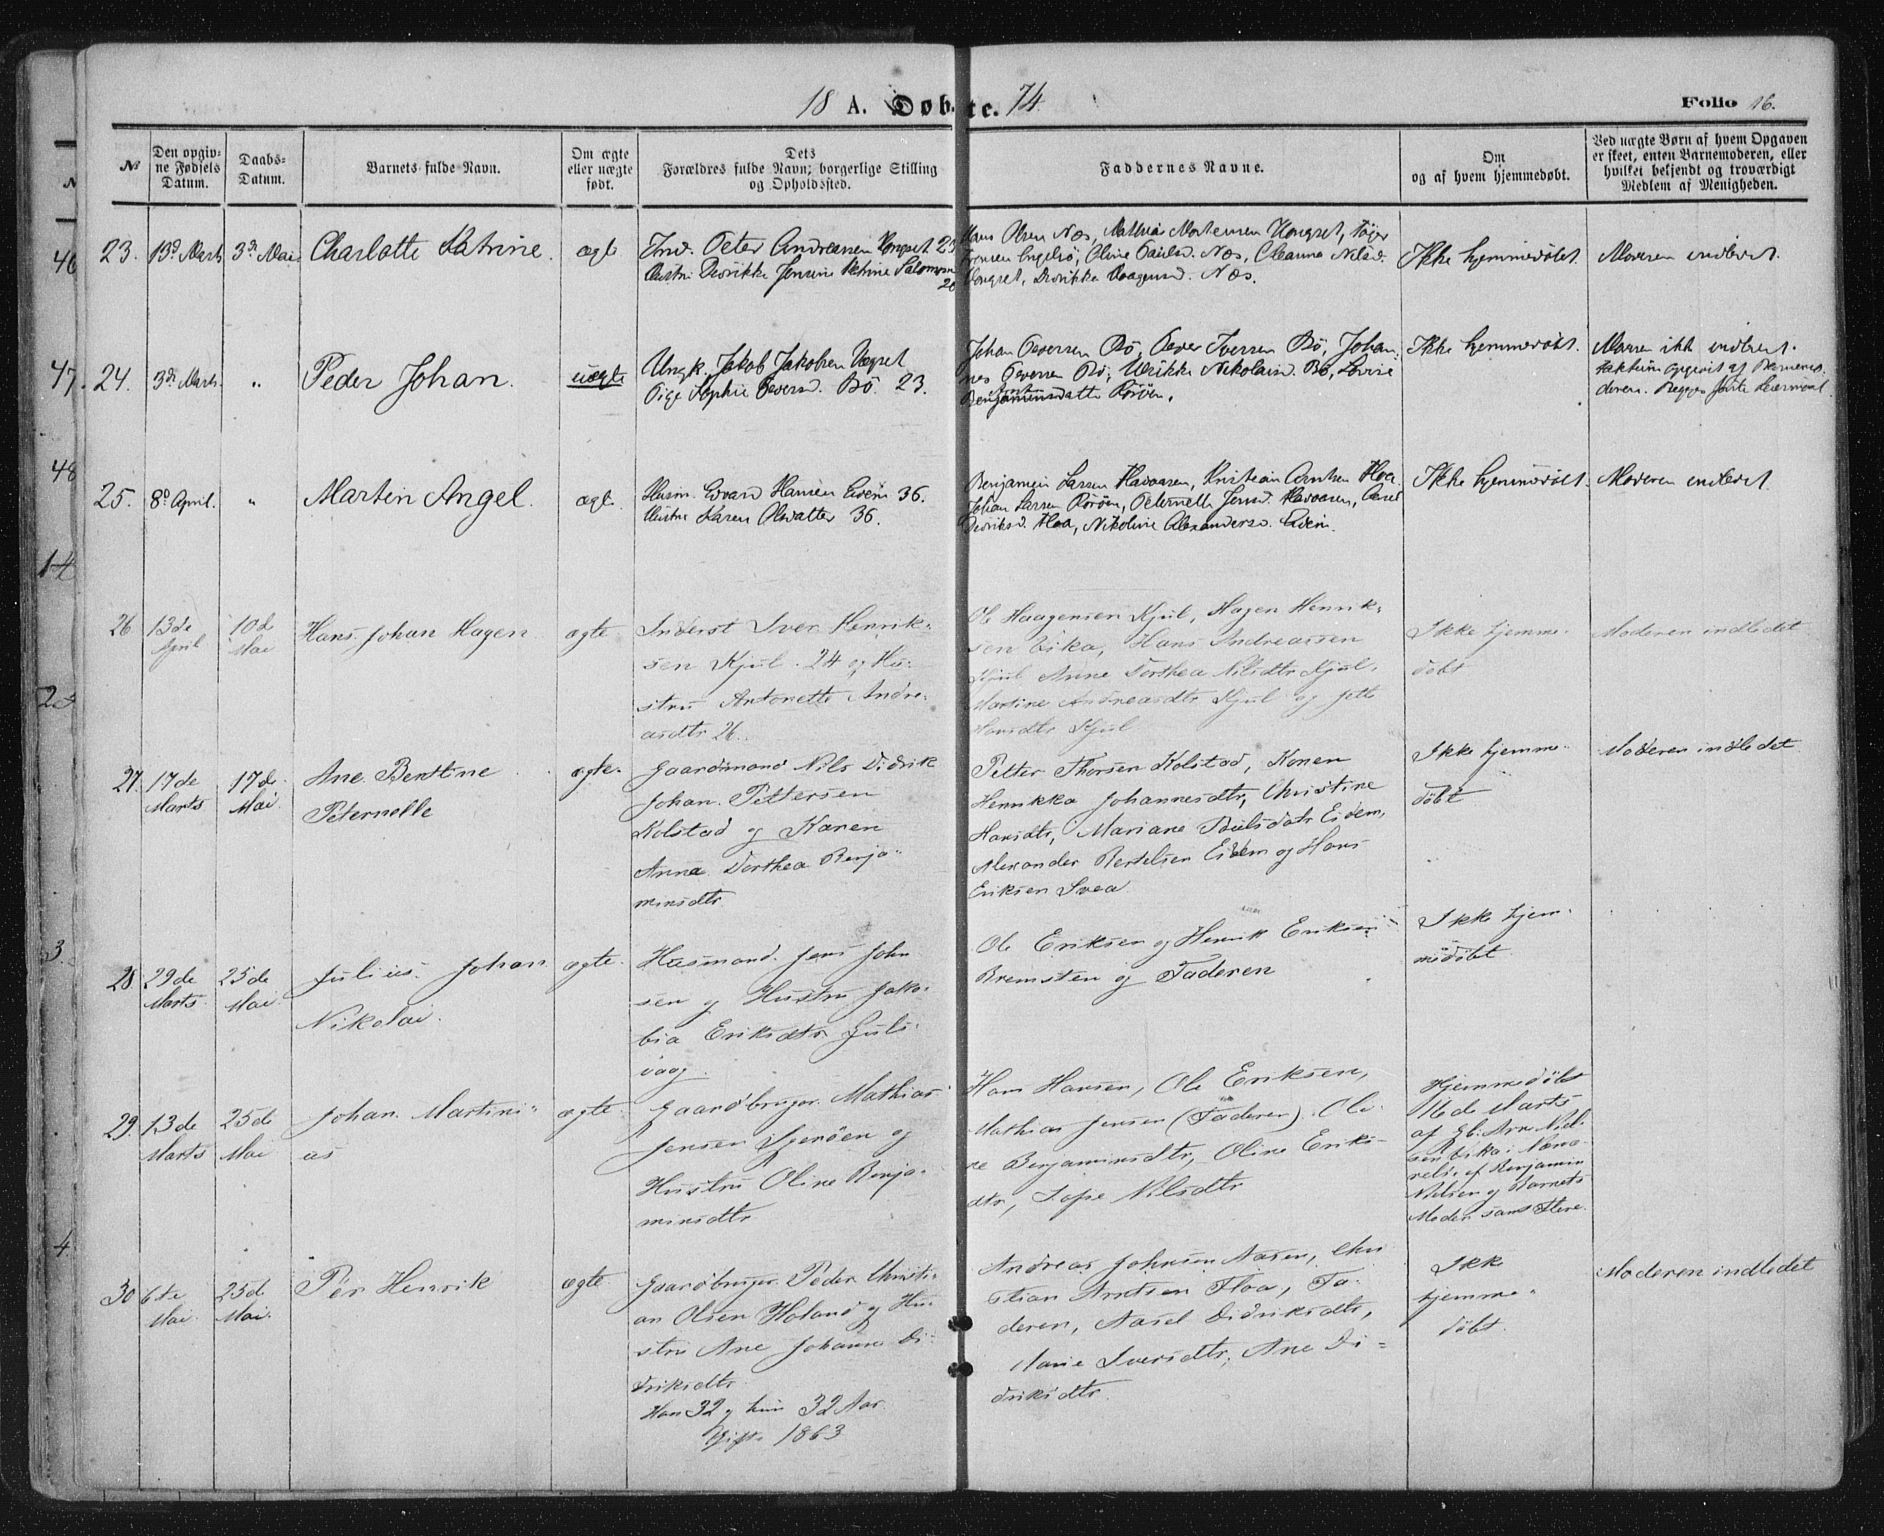 18 A. Døbte. 74.
Folio 16.
No
Den opgivne Fødsels Datum.
Daabs-Datum.
Barnets fulde Navn.
Om ægte eller uægte født.
Dets Forældres fulde Navn, borgerlige Stilling og Opholdssted.
Faddernes Navne.
Om og af hvem hjemmedøbt.
Ved uægte Børn af hvem Opgaven er skeet, enten Barnemoderen, eller hvilket bekjendt og troværdigt Medlem af Menigheden.
46
23. 13d Marts 3de Mai Charlotte Katrine. ægte
Ind. Peter Andreassen Hongset 23
Hustru Jensine Katrine
Hans Olsen Næs, Mathias Mortensen Hongset,
Oline Paulsd. Næs, Nilsd.
Hongset, Næs.
Ikke hjemmedøbt.
Moderen indledet.
47.
24. 3de Marts " Peder Johan. uægte
Ungk. Jakob Jakobsen
Pige Sophie Peversd. Bø. 23.
Johan Bø, Iversen Bø, Johan-
nes Bø, Ulrikke Nikolaisd. Bø,
Benjaminsdatter Rørøen.
Ikke hjemmedøbt.
Moderen ikke indledet.
opgivet af Barnemo-
deren. Begges første Leiermaal.
48
25. 8d April. " Martin Angel. ægte.
Husm. Edvard Hansen Eidem 36.
Hustru Karen Olsdatter 36.
Benjamin Larsen Havaasen, Kristian Arntsen Floa
Johan Larsen Rørøen, Peternelle Jensd. Havaasen,
Didriksd. Floa, Nikoline Alexandersd. Eidem.
Ikke hjemmedøbt.
Moderen indledet
14
26 13de April 10d Mai Hans Johan Hagen ægte
Inderst Iver Henrik-
sen Kjul. 24 og Hu-
stru Antonette Andre-
asdtr 26.
Ole Haagensen Kjul, Hagen Henrik-
sen Vika, Hans Andreassen
Kjul Anne Dorthea Nilsdtr Kjul,
Martine Andreasdtr Kjul og
Hansdtr Kjul
Ikke hjemme-
døbt
Moderen indledet
27. 17de Marts 17de Mai Ane Bentine
Peternelle
ægte.
Gaardmand Nils Didrik
Johan Pettersen
Kolstad og Karen
Anna Dorthea Benja-
minsdtr
Petter Thorsen Kolstad, Konen
Henrikka Johannesdtr, Christine
Hansdtr, Mariane Eidem,
Alexander Bertelsen Eidem og Hans
Eriksen Svea
Ikke hjemme-
døbt
Moderen indledet
3.
28 29de Marts 25de Mai Julius Johan
Nikolai.
ægte.
Husmand Jens John
sen og Hustru Jako-
bia Eriksdtr Juls-
vaag.
Ole Eriksen og Henrik Eriksen
Bremsten og Faderen
Ikke hjem-
medøbt
29. 13de Marts 25de Mai Johan Martini-
as
ægte.
Gaardbruger Mathias
Jensen og
Hustru Oline Benja-
minsdtr
Hans Hansen, Ole Eriksen,
Mathias Jensen (Faderen). Oli-
ne Benjaminsdtr, Oline Eriks-
dtr, Sofie Nilsdtr
Hjemmedøbt
16de Marts
af Gb. Arn Niel-
sen Vika i Nærvæ-
relse af Benjamin
Nilsen og Barnets
Moder samt Flere.
4.
30 6te Mai 25de Mai. Per Henrik ægte.
Gaardbruger Peder Christi-
an Olsen Holand og Hu-
stru Ane Johanna Di-
driksdtr
Han 32 og hun 32 Aar.
Gifte 1863
Andreas Johnsen Aasen, Chri
stian Arntsen Floa, Fa-
deren, Aasel Didriksdtr,
Marie Iversdtr, Ane Di-
driksdtr.
Ikke
hjemme-
døbt.
Moderen indledet